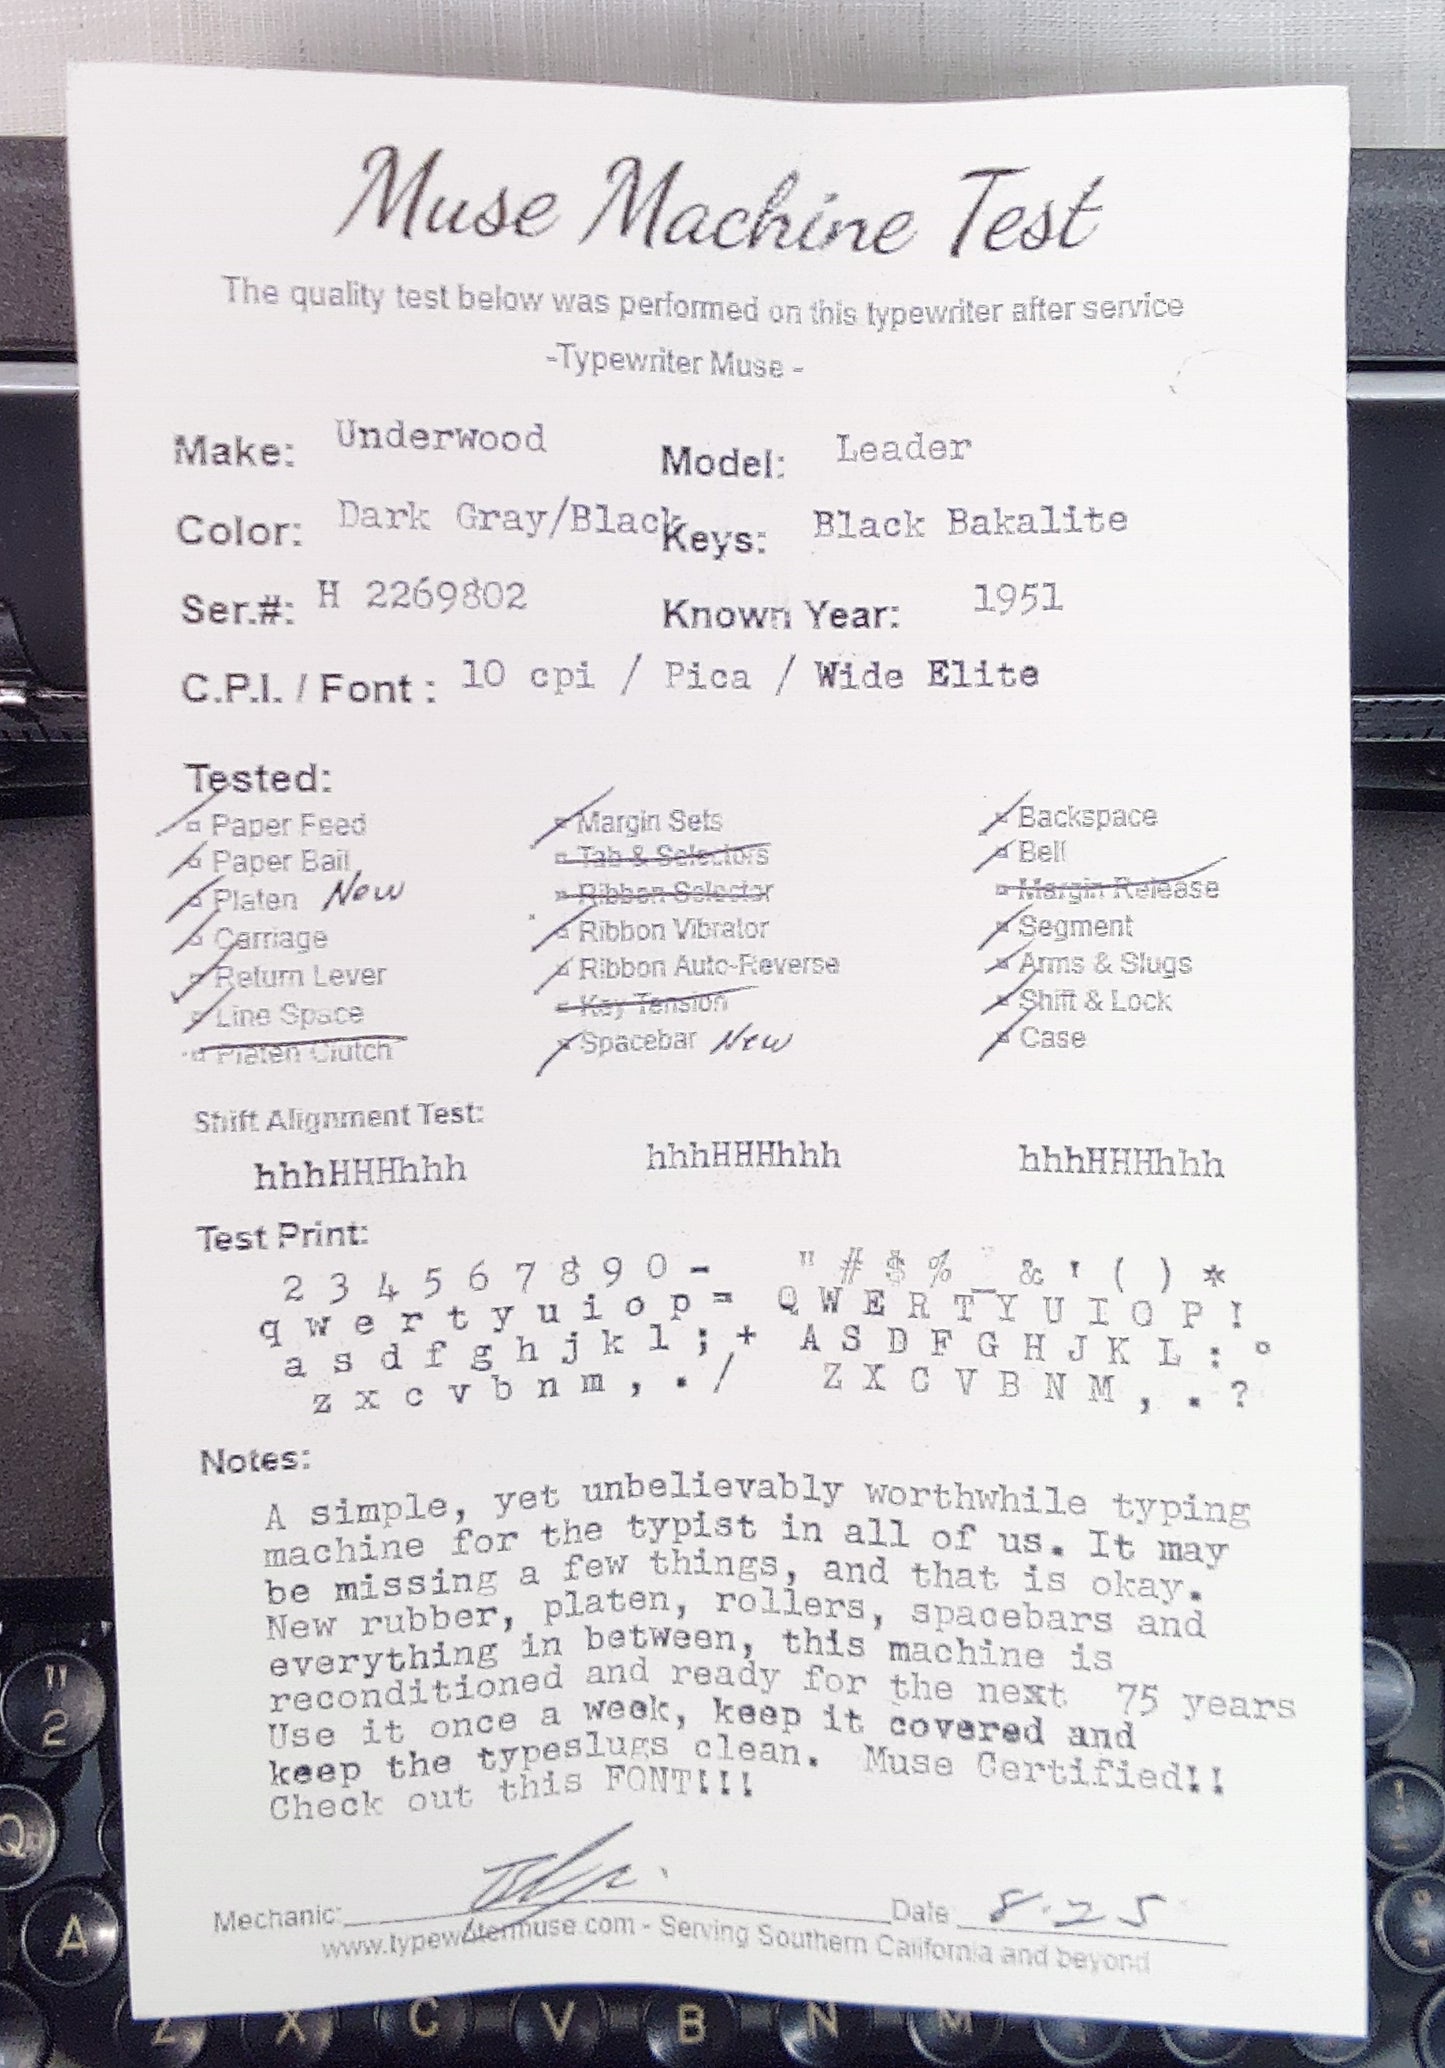 Muse Machine Test
The quality test below was performed on this typewriter after service
-Typewriter Muse -
Make: Underwood Model: Leader
Color: Dark Gray/Black Keys: Black Bakalite
Ser.#: H 2269802 Known Year: 1951
C.P.I. / Font : 10 cpi / Pica / Wide Elite
Tested:
Paper Feed Margin Sets Backspace
Paper Bail Tab & Selectors Bell
Platen New Ribbon Selector Margin Release
Carriage Ribbon Vibrator Segment
Return Lever Ribbon Auto-Reverse Arms & Slugs
Line Space Key Tension Shift & Lock
Platen Clutch Spacebar New Case
Shift Alignment Test:
hhhHHHhhh hhhHHHhhh hhhHHHhhh
Test Print:
2 3 4 5 6 7 8 9 0 - " # $ % _ & ' ( ) *
q w e r t y u i o p = Q W E R T Y U I O P !
a s d f g h j k l ; + A S D F G H J K L : °
z x c v b n m , . / Z X C V B N M , . ?
Notes:
A simple, yet unbelievably worthwhile typing
machine for the typist in all of us. It may
be missing a few things, and that is okay.
New rubber, platen, rollers, spacebars and
everything in between, this machine is
reconditioned and ready for the next 75 years
Use it once a week, keep it covered and
keep the typeslugs clean. Muse Certified!!
Check out this FONT!!!
Mechanic: Date 8-25
www.typewritermuse.com - Serving Southern California and beyond
"
2
Q
A
Z X C V B N M